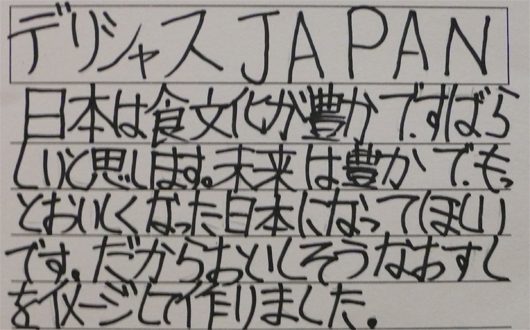 デリシャスJAPAN
日本は食文化が豊かですばら
しいと思います。未来は豊かでもっ
とおいしくなった日本になってほしい
です。だからおいしそうなおすし
をイメージして作りました。